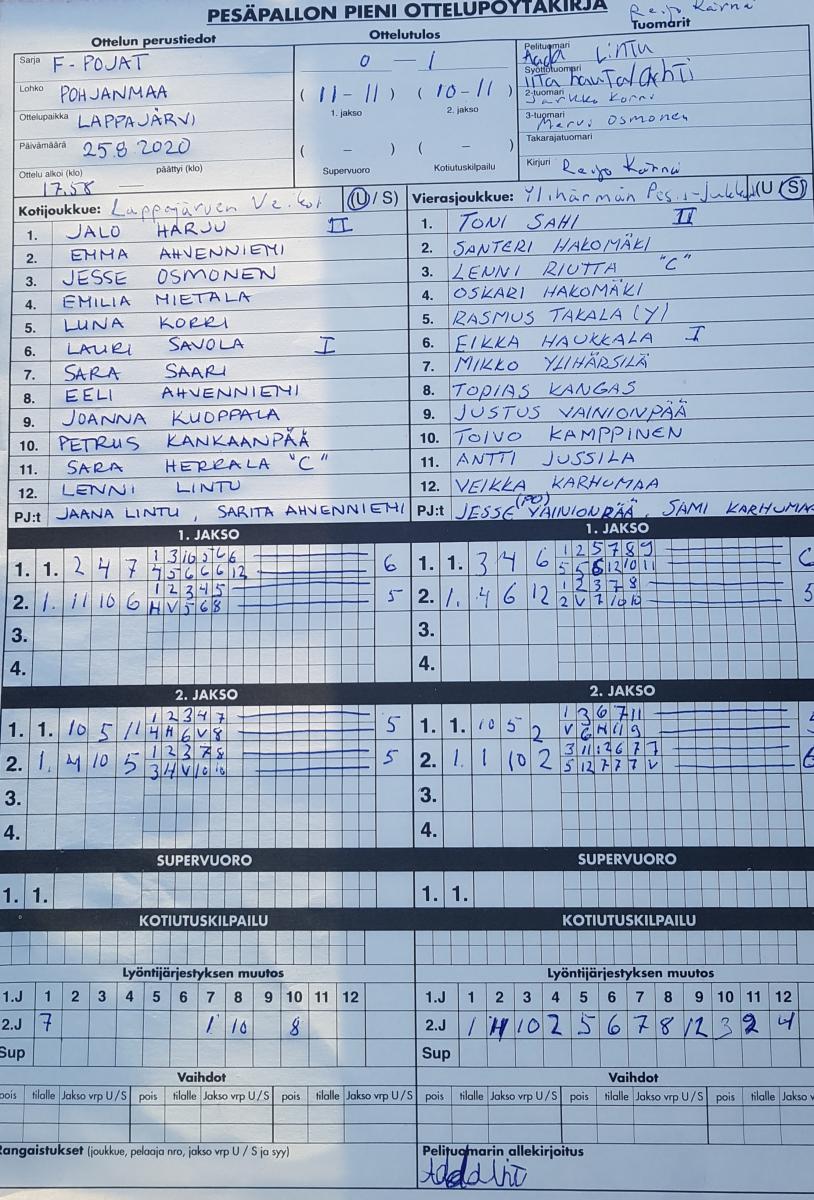 PESÄPALLON PIENI OTTELUPÖYTÄKIRJA
Reijo Kärnä
Ottelun perustiedot
Ottelutulos
Tuomarit
Sarja F-POJAT
Lohko POHJANMAA
Ottelupaikka LAPPAJÄRVI
Päivämäärä 25.8.2020
Ottelu alkoi (klo) päättyi (klo)
17.58 —
0 — 1
( 11 - 11 ) ( 10 - 11 )
1. jakso 2. jakso
( - ) ( - )
Supervuoro Kotiutuskilpailu
Pelituomari Aada Lintu
Syöttötuomari
2-tuomari Jarkko Korri
3-tuomari Mervi Osmonen
Takarajatuomari
Kirjuri Reijo Kärnä
Kotijoukkue: Lappajärven Ve (U / S)
1. JALO HARJU II
2. EMMA AHVENNIEMI
3. JESSE OSMONEN
4. EMILIA MIETALA
5. LUNA KORRI
6. LAURI SAVOLA I
7. SARA SAARI
8. EELI AHVENNIEMI
9. JOANNA KUOPPALA
10. PETRUS KANKAANPÄÄ
11. SARA HERRALA "C"
12. LENNI LINTU
PJ:t JAANA LINTU, SARITA AHVENNIEMI
Vierasjoukkue: Ylihärmän Pes (U / S)
1. TONI SAHI II
2. SANTERI HAKOMÄKI
3. LENNI RIUTTA "C"
4. OSKARI HAKOMÄKI
5. RASMUS TAKALA (Y)
6. EIKKA HAUKKALA I
7. MIKKO YLIHÄRSILÄ
8. TOPIAS KANGAS
9. JUSTUS VAINIONPÄÄ
10. TOIVO KAMPPINEN
11. ANTTI JUSSILA
12. VEIKKA KARHUMAA
PJ:t JESSE (PO) VAINIONPÄÄ, SAMI KARHUMAA
1. JAKSO
1. 1. 2 4 7 1 3 10 5 6 6 6
4 5 6 6 6 12
2. 1. 11 10 6 1 2 3 4 5 5
H V 5 6 8
3.
4.
1. JAKSO
1. 1. 3 4 6 1 2 5 7 8 9
5 5 6 12 10 11
2. 1. 4 6 12 1 2 3 7 8 5
2 V 7 10 10
3.
4.
2. JAKSO
1. 1. 10 5 11 1 2 3 4 7 5
4 H 6 V 8
2. 1. 4 10 5 1 2 3 7 8 5
3 H V 10 10
3.
4.
2. JAKSO
1. 1. 10 5 2 1 3 6 7 11
V 6 H 11 9
2. 1. 1 10 2 3 11 2 6 7 7 6
5 12 7 7 7 V
3.
4.
SUPERVUORO
1. 1.
SUPERVUORO
1. 1.
KOTIUTUSKILPAILU
KOTIUTUSKILPAILU
Lyöntijärjestyksen muutos
1.J 1 2 3 4 5 6 7 8 9 10 11 12
2.J 7 1 10 8
Sup
Lyöntijärjestyksen muutos
1.J 1 2 3 4 5 6 7 8 9 10 11 12
2.J 1 11 10 2 5 6 7 8 12 3 9 4
Sup
Vaihdot
pois tilalle Jakso vrp U / S pois tilalle Jakso vrp U / S pois tilalle Jakso vrp U / S
Vaihdot
pois tilalle Jakso vrp U / S pois tilalle Jakso vrp U / S pois tilalle Jakso v
Rangaistukset (joukkue, pelaaja nro, jakso vrp U / S ja syy)
Pelituomarin allekirjoitus